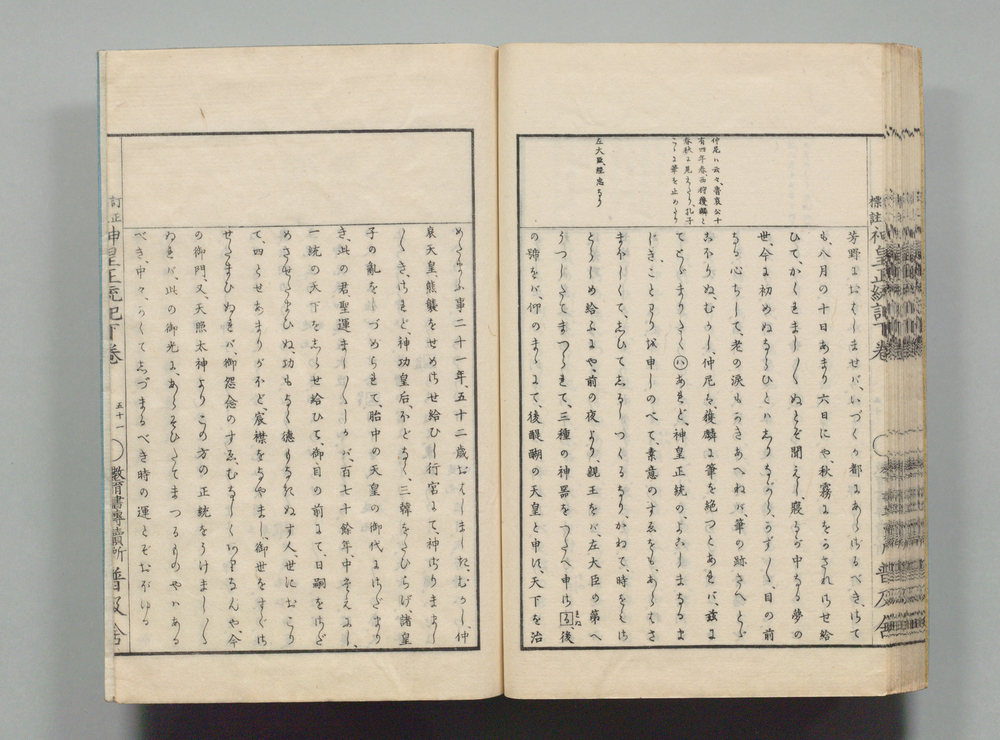 標註神皇正統記下卷
普及舍
仲尼ハ云々、魯哀公十
有四年春西狩獲麟と
春秋に見えたり、孔子
こゝに筆を止めたり
左大臣、經忠なり
芳野におはしませば、いづくか都にあらざるべき、さて
も、八月の十日あまり六日にや、秋霧にをかされさせ給
ひて、かくれまし〳〵ぬとぞ聞えし、寢るが中なる夢の
世、今に初めぬならひとハしりながら、かず〳〵、目の前
なる心ちして、老の涙もかきあへねば、筆の跡さへとゞ
こほりぬ、むかし、仲尼は、獲麟に筆を絶つとあれば、茲に
てとゞまりたくハあれど、神皇正統のよこしまなるま
じきことわりを申しのべて、素意のすゑをも、あらはさ
まほしくて、しひてしるしつくるなり、かねて、時をもさ
とらしめ給ふにや、前の夜より、親王をば、左大臣の第へ
うつしたてまつられて、三種の神器を、つたへ申さる、後
の號をば、仰のまゝにて、後醍醐の天皇と申す、天下を治
めたまふ事二十一年、五十二歳おはしましき、むかし、仲
哀天皇、熊襲をせめさせ給ひし行宮にて、神さりまし
〳〵き、されど、神功皇后、ほどなく、三韓をたひらげ、諸皇
子の亂をしづめられて、胎中の天皇の御代にさだまり
き、此の君、聖運まし〳〵しかバ、百七十餘年、中たえにし、
一統の天下をしらせ給ひて、御目の前にて、日嗣をさだ
めさせたまひぬ、功もなく德もなきぬす人、世におこり
て、四とせあまりがほど、宸襟をなやまし、御世をすぐさ
せたまひぬれバ、御怨念のすゑ、むなしくはべりなんや、今
の御門、又、天照太神よりこの方の正統をうけまし〳〵
ぬれバ、此の御光に、あらそひたてまつるものやハある
べき、中々、かくてしづまるべき時の運とぞおぼゆる
訂正神皇正統記下卷
五十一
敎育書專賣所普及舍